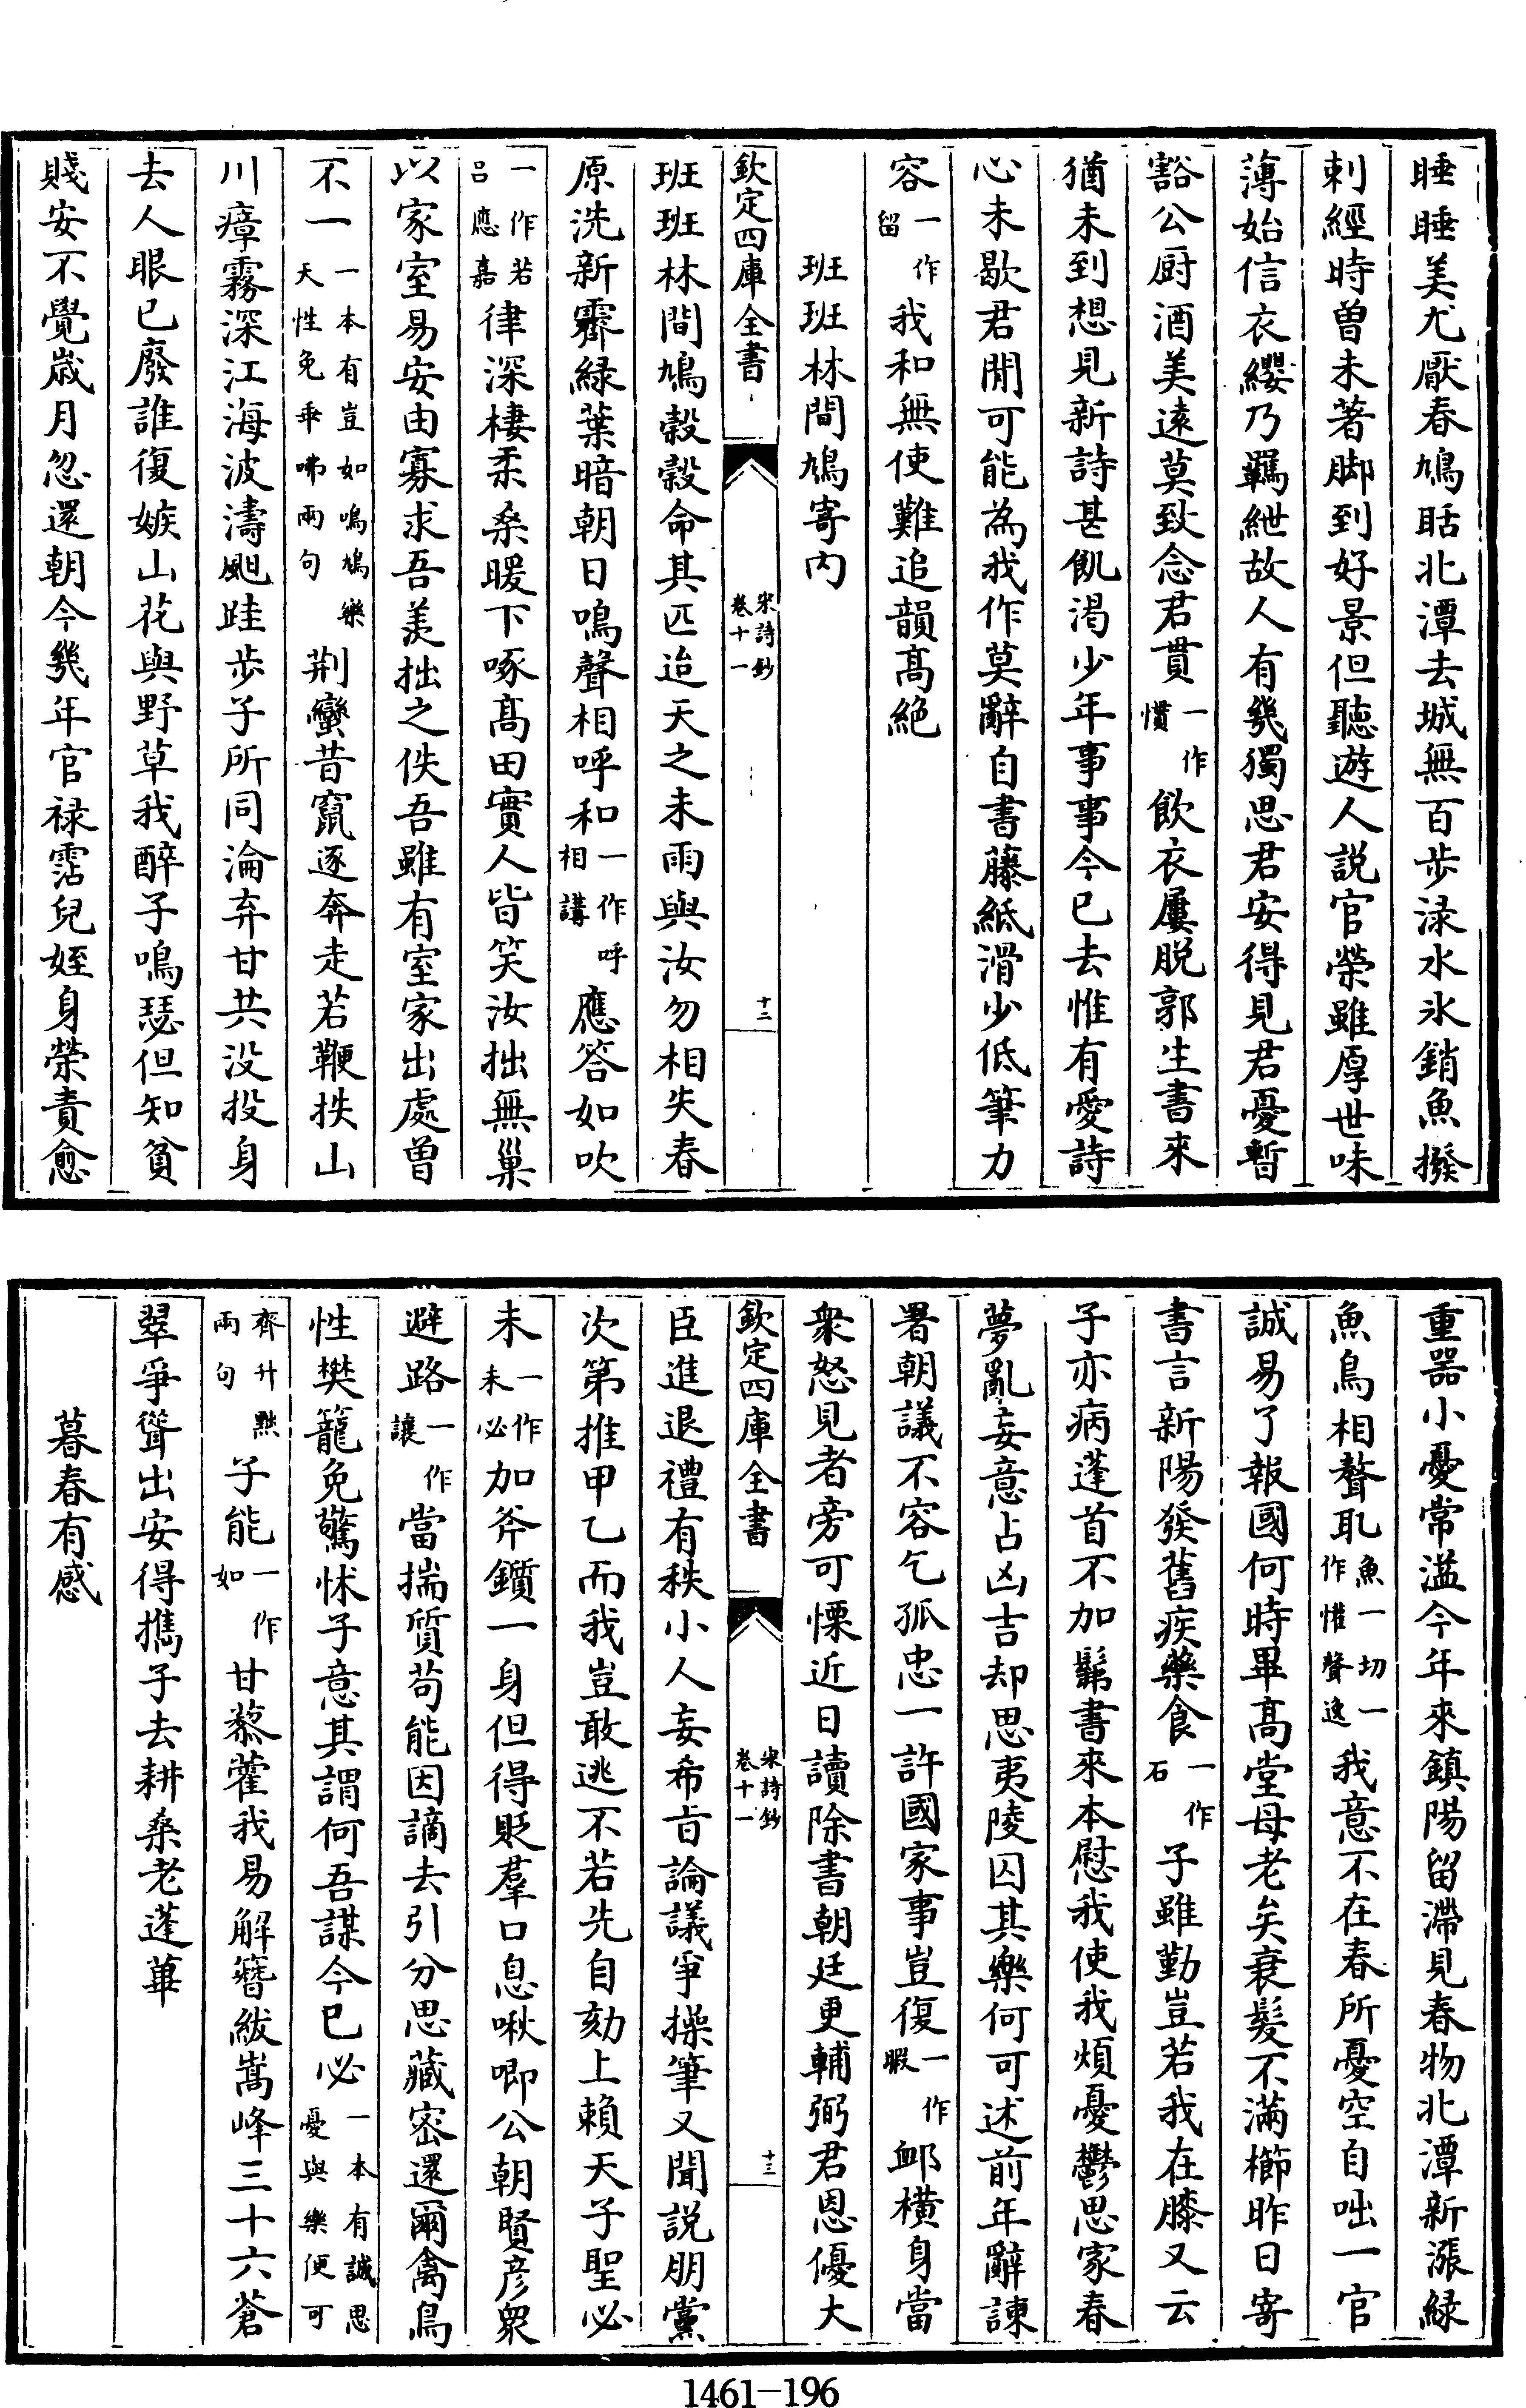 睡睡美尤厭春鳩聒北潭去城無百步渌水氷銷魚撥
刺經時曽未著脚到好景但聽遊人説官榮雖厚世味
薄始信衣纓乃羈紲故人有幾獨思君安得見君憂暫
豁公厨酒美遠莫致念君貫一作慣飲衣屢脱郭生書來
猶未到想見新詩甚飢渴少年事事今已去惟有愛詩
心未歇君閒可能為我作莫辭自書藤紙滑少低筆力
容一作留我和無使難追韻髙絶
班班林間鳩寄内
欽定四庫全書
宋詩鈔
卷十一
十二
班班林間鳩糓糓命其匹迨天之未雨與汝勿相失春
原洗新霽緑葉暗朝日鳴聲相呼和一作呼相講應答如吹
一作若吕應嘉律深棲柔桑暖下啄髙田實人皆笑汝拙無巢
以家室易安由寡求吾羡拙之佚吾雖有室家出處曽
不一一本有豈如鳴鳩樂天性免乖咈兩句荆蠻昔竄逐奔走若鞭抶山
川瘴霧深江海波濤颭跬歩子所同淪弃甘共没投身
去人眼已廢誰復嫉山花與野草我醉子鳴瑟但知貧
賤安不覺歲月忽還朝今幾年官禄霑兒姪身榮責愈
重器小憂常溢今年來鎮陽留滯見春物北潭新漲緑
魚鳥相聱耴魚一切一作惟聲逸我意不在春所憂空自咄一官
誠易了報國何時畢髙堂母老矣衰髮不滿櫛昨日寄
書言新陽發舊疾藥食一作石子雖勤豈若我在膝又云
子亦病蓬首不加髴書來本慰我使我煩憂鬱思家春
夢亂妄意占凶吉却思夷陵囚其樂何可述前年辭諌
署朝議不容乞孤忠一許國家事豈復一作暇䘏横身當
衆怒見者旁可慄近日讀除書朝廷更輔弼君恩優大
欽定四庫全書
宋詩鈔
卷十一
十三
臣進退禮有秩小人妄希㫖論議爭操筆又聞説朋黨
次第推甲乙而我豈敢逃不若先自劾上賴天子聖必
未一作未必加斧鑕一身但得貶羣口息啾唧公朝賢彦衆
避路一作讓當揣質苟能因謫去引分思藏密還爾禽鳥
性樊籠免驚怵子意其謂何吾謀今已必一本有誠思憂與樂便可
齊升黜兩句子能一作如甘藜藿我易解簪紱嵩峰三十六蒼
翠爭聳出安得擕子去耕桑老蓬蓽
暮春有感
1461-196